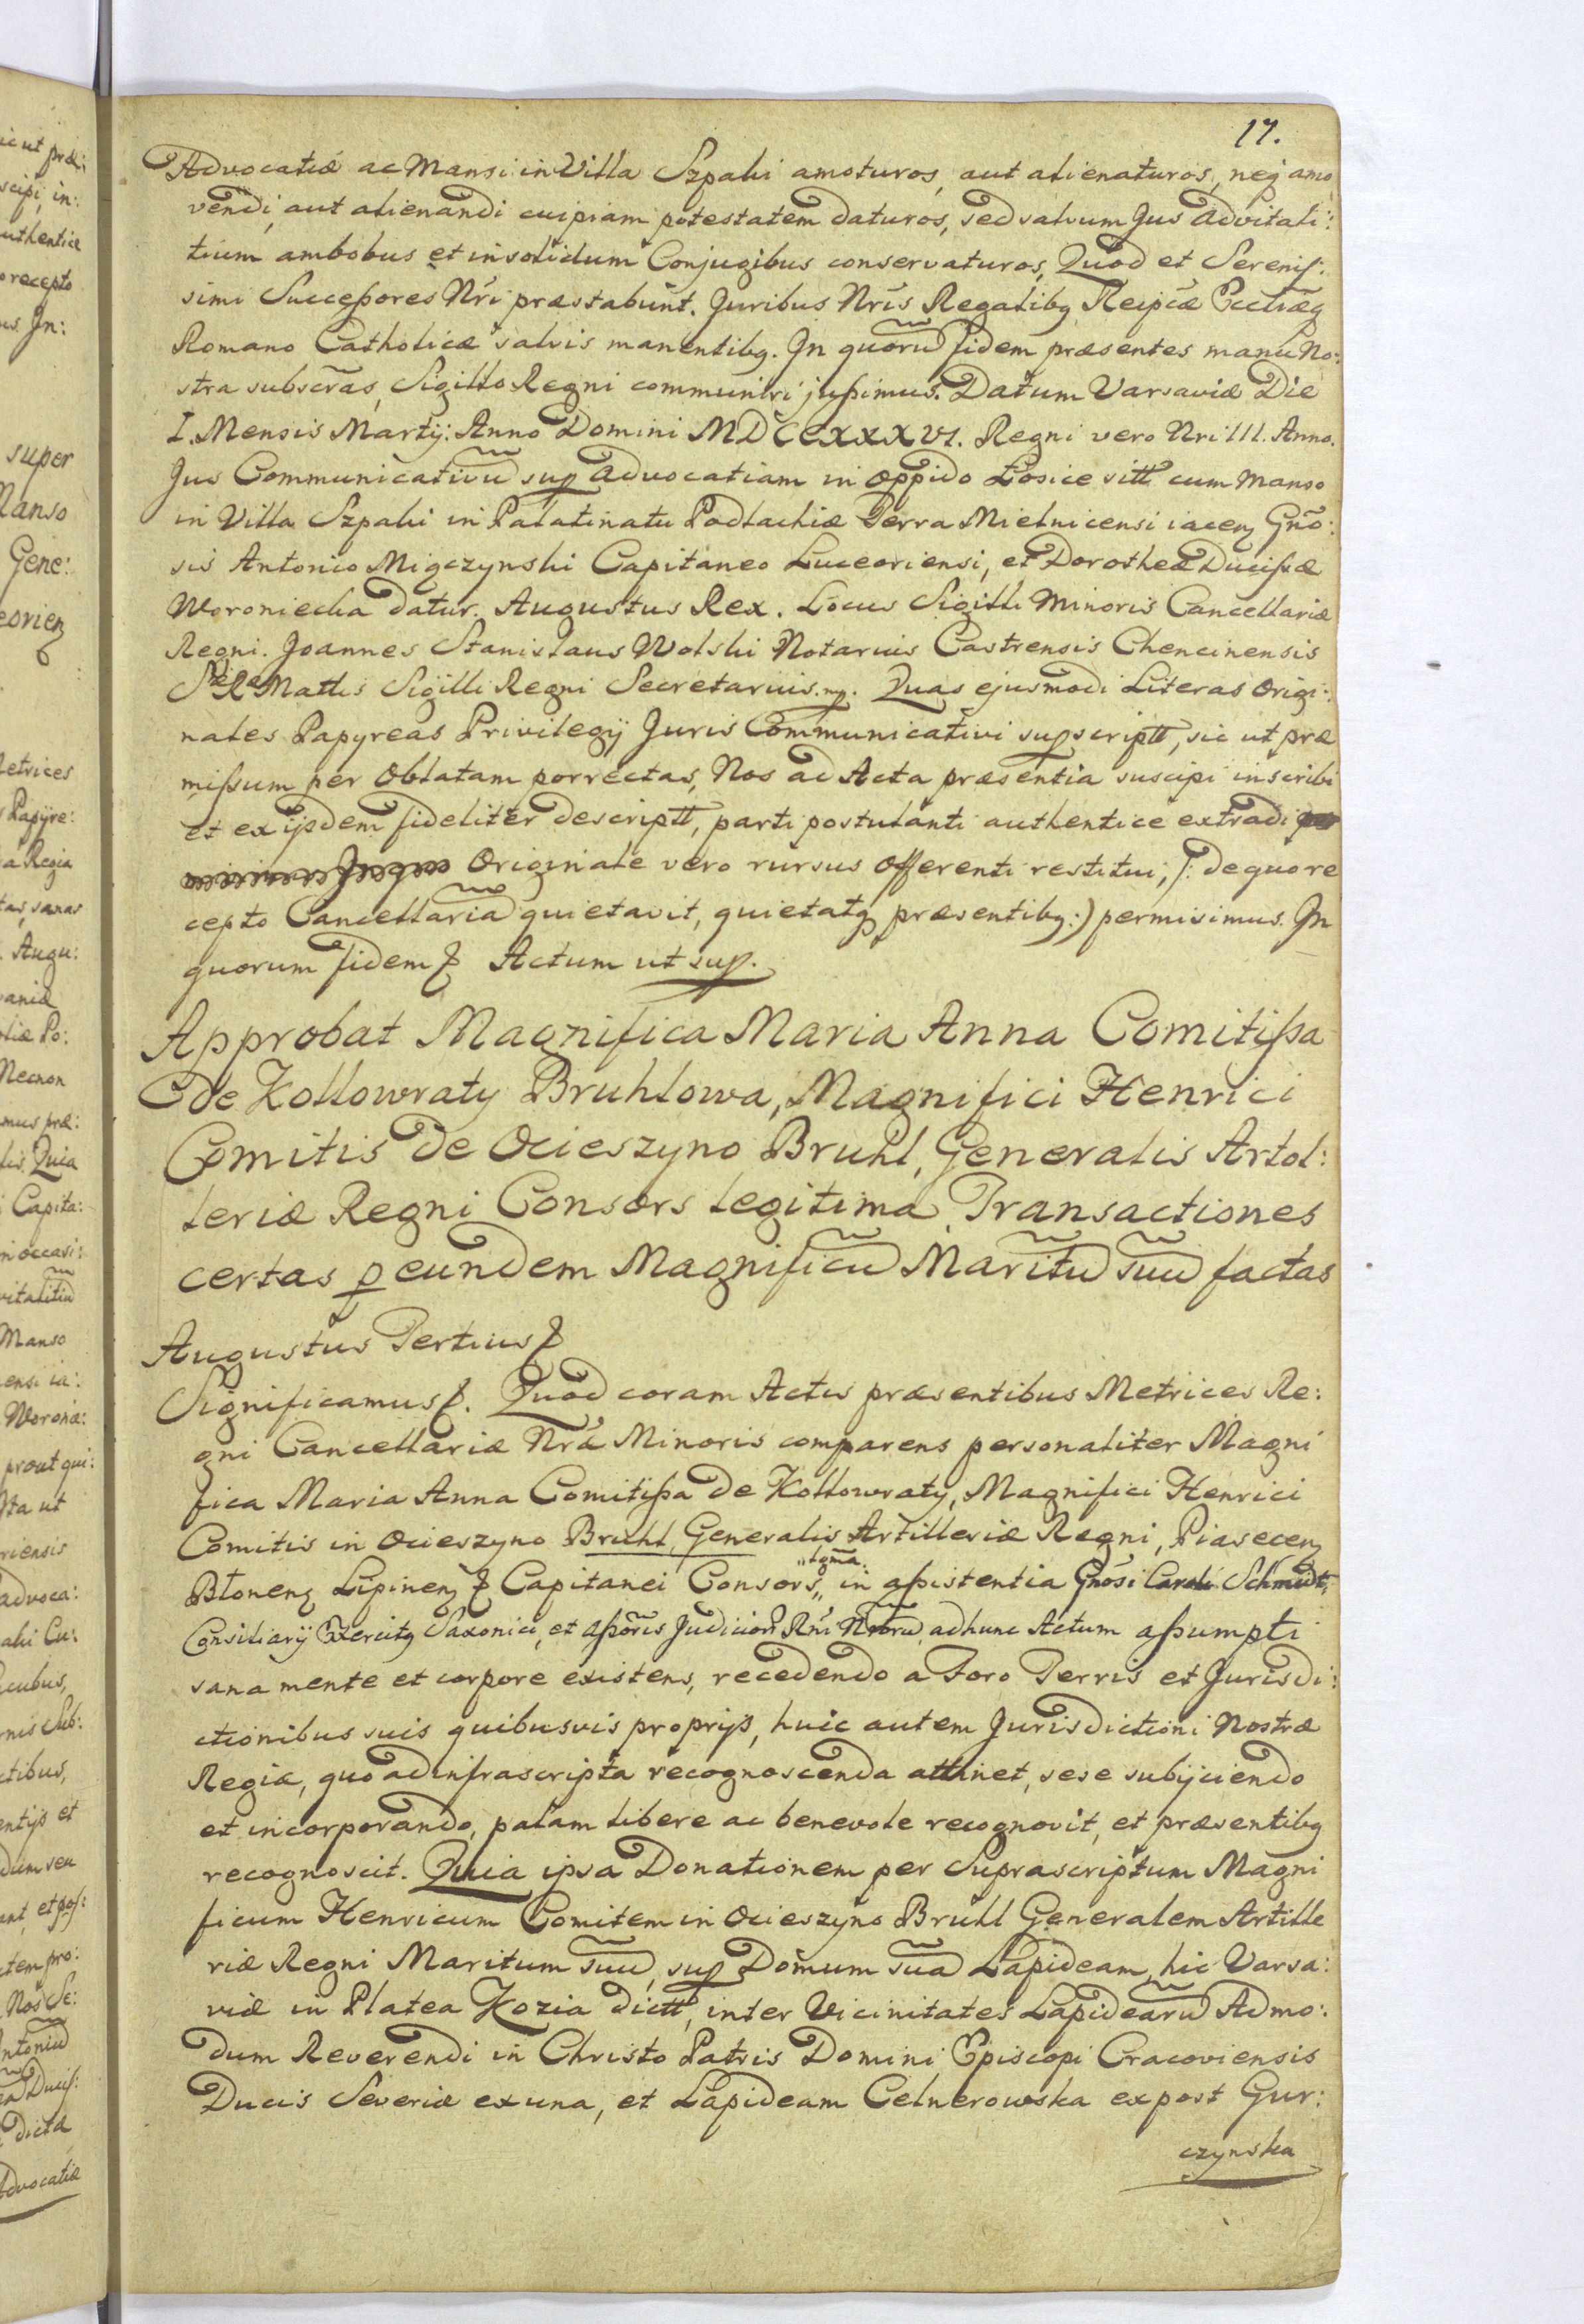 17.
Advocatiæ ac Mansi in Villa Szpaki amoturos, aut alienaturos, neq amo
vendi, aut alienandi cuipiam potestatem daturos, sed salvum Jus Advitali:
tium ambobus et in solidum Conjugibus conservaturos, Quod et Serenis:
simi Successores Nri præstabunt. Juribus Nris Regalibq Reipcæ Ecclræq
Romano Catholicæ salvis manentibq. In quorũ fidem præsentes manu No:
stra subscras, Sigillo Regni communiri jussimus. Datum Varsaviæ Die
I. Mensis Martÿ: Anno Domini MDCCXXXVI. Regni vero Nri III. Anno.
Jus Communicativũ sup Advocatiam in Oppido Łosice sitt cum Manso
in Villa Szpaki in Palatinatu Podlachiæ Terra Mielnicensi iacen Gño:
sis Antonio Migczynski Capitaneo Luceoriensi, et Dorotheæ Ducissæ
Woroniecka datur. Augustus Rex. Locus Sigilli Minoris Cancellariæ
Regni. Joannes Stanislaus Wolski Notarius Castrensis Chencinensis
S Ræ Mattis Sigilli Regni Secretarius. mp. Quas ejusmodi Literas Origi:
nales Papyreas Privilegÿ Juris Communicativi supscriptt, sic ut præ
missum per Oblatam porrectas, Nos ad Acta præsentia suscipi inscribi
et ex ijsdem fideliter descriptt, parti postulanti authentice extradi
Originale vero rursus offerenti restitui, /: de quo re
cepto Cancellariã quietavit, quietatq præsentibq:) permisimus. In
quorum fidem Actum ut sup.
Approbat Magnifica Maria Anna Comitissa
de Kollowraty Bruhlowa, Magnifici Henrici
Comitis de Ocieszyno Bruhl, Generalis Artol:
leriæ Regni Consors legitima, Transactiones
certas p eundem Magnificũ Maritũ suũ factas
Augustus Tertius
Significamus. Quod coram Actis præsentibus Metrices Re:
gni Cancellariæ Nræ Minoris comparens personaliter Magni
fica Maria Anna Comitissa de Kollowraty, Magnifici Henrici
Comitis in Ocieszyno Bruhl, Generalis Artilleriæ Regni, Piasecen
Błonen Lipinen Capitanei Consors, „ltgma. in assistentia Gnosi Caroli Schmidt,
Consiliarÿ Exercitq Saxonici, et Assoris Judicior Rni Nrorũ, ad hunc Actum assumpti
sana mente et corpore existens, recedendo a Foro Terris et Jurisdi:
ctionibus suis quibusvis proprijs, huic autem Jurisdictioni Nostræ
Regiæ, quo ad infrascripta recognoscenda attinet, sese subÿciendo
et incorporando, palam libere ac benevole recognovit, et præsentibq
recognoscit. Quia ipsa Donationem per Suprascriptum Magni
ficum Henricum Comitem in Ocieszyno Bruhl Generalem Artille
riæ Regni Maritum suũ, sup Domum suã Lapideam, hic Varsa:
viæ in Platea Kozia dictt, inter Vicinitates Lapidearũ Admo:
dum Reverendi in Christo Patris Domini Episcopi Cracoviensis
Ducis Severiæ ex una, et Lapideam Celnerowska ex post Gur:
czynska
super
Gene:
Papÿre:
Augu:
Necnon
Quia
Capita:
Manso
prout qui:
advoca:
dicta
Advocatiæ